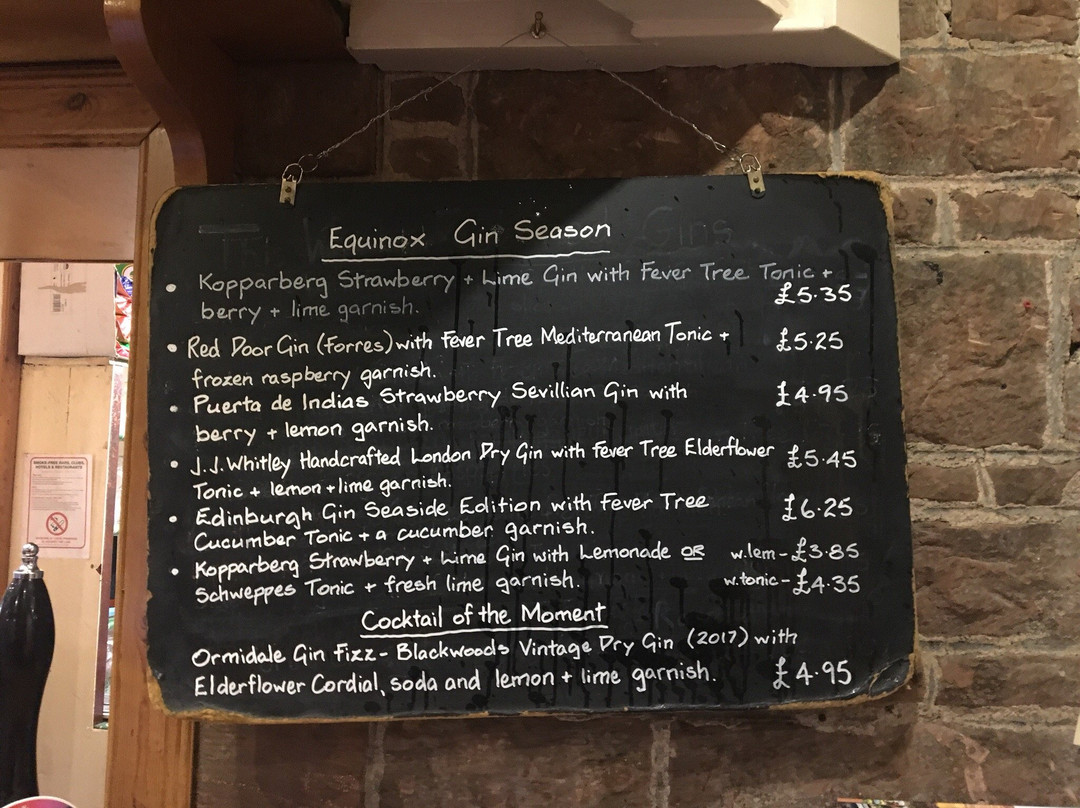 Equinox Gin Season
• Kopparberg Strawberry + Lime Gin with Fever Tree Tonic +
berry + lime garnish. £5.35
• Red Door Gin (Forres) with Fever Tree Mediterranean Tonic + £5.25
frozen raspberry garnish.
• Puerta de Indias Strawberry Sevillian Gin with £4.95
berry + lemon garnish.
• J.J. Whitley Handcrafted London Dry Gin with Fever Tree Elderflower £5.45
Tonic + lemon + lime garnish.
• Edinburgh Gin Seaside Edition with Fever Tree £6.25
Cucumber Tonic + a cucumber garnish.
• Kopparberg Strawberry + Lime Gin with Lemonade OR w.lem - £3.85
Schweppes Tonic + fresh lime garnish. w.tonic - £4.35
Cocktail of the Moment
Ormidale Gin Fizz - Blackwoods Vintage Dry Gin (2017) with
Elderflower Cordial, soda and lemon + lime garnish. £4.95